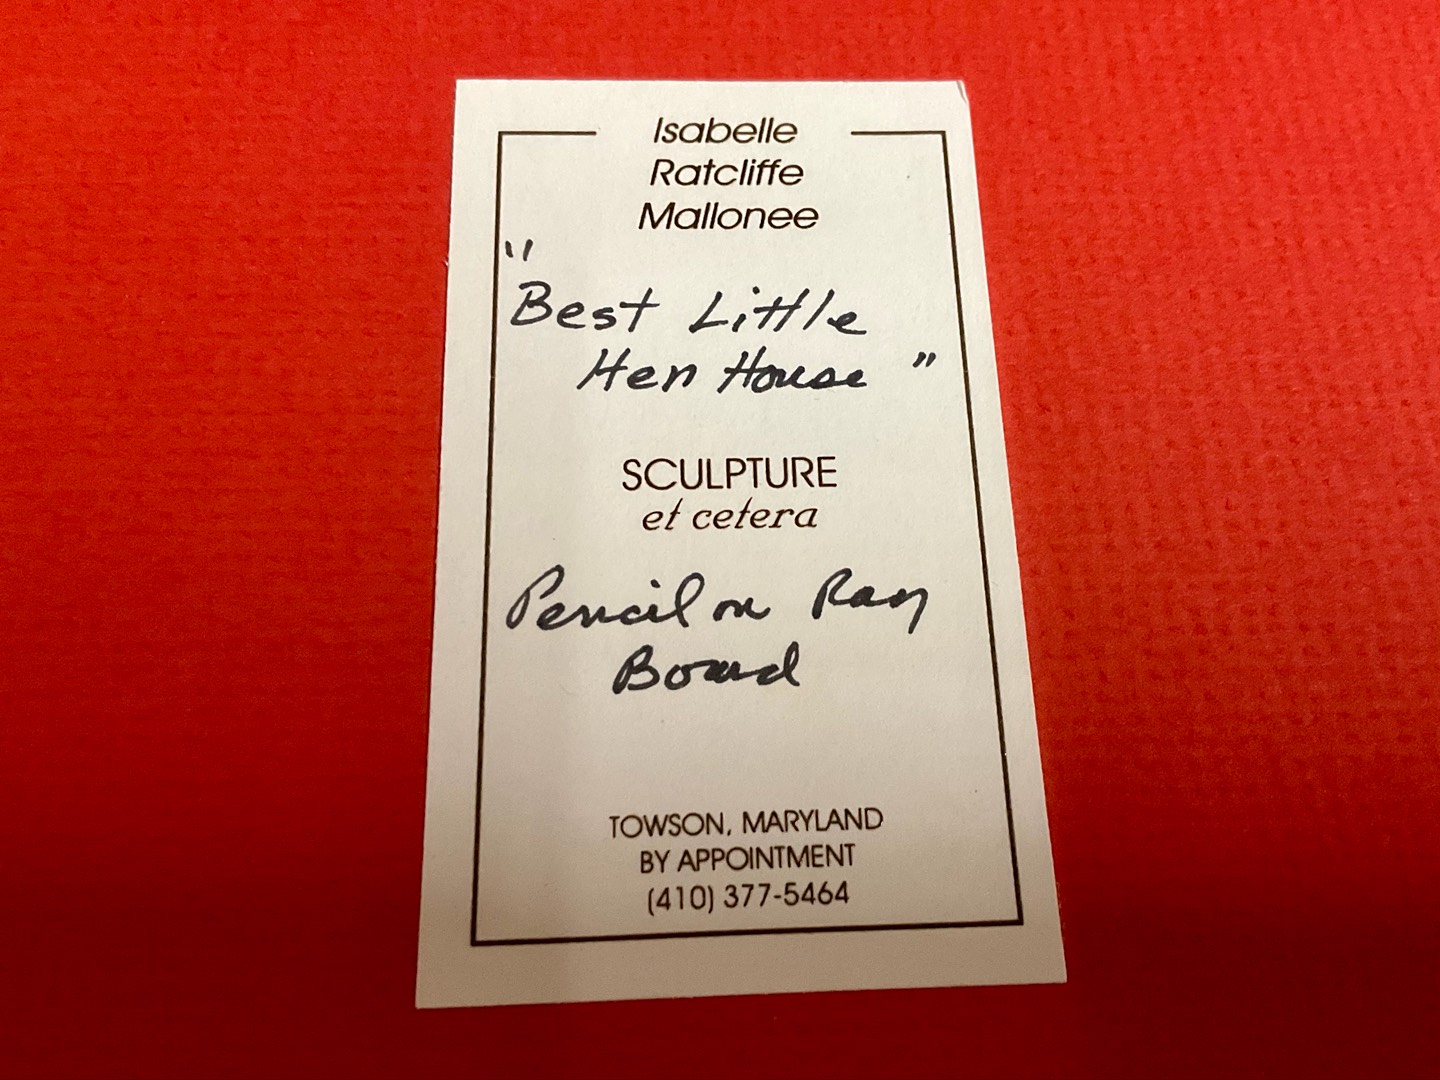 Isabelle
Ratcliffe
Mallonee
"
Best Little
Hen House "
SCULPTURE
et cetera
Pencil on Rag
Board
TOWSON, MARYLAND
BY APPOINTMENT
(410) 377-5464